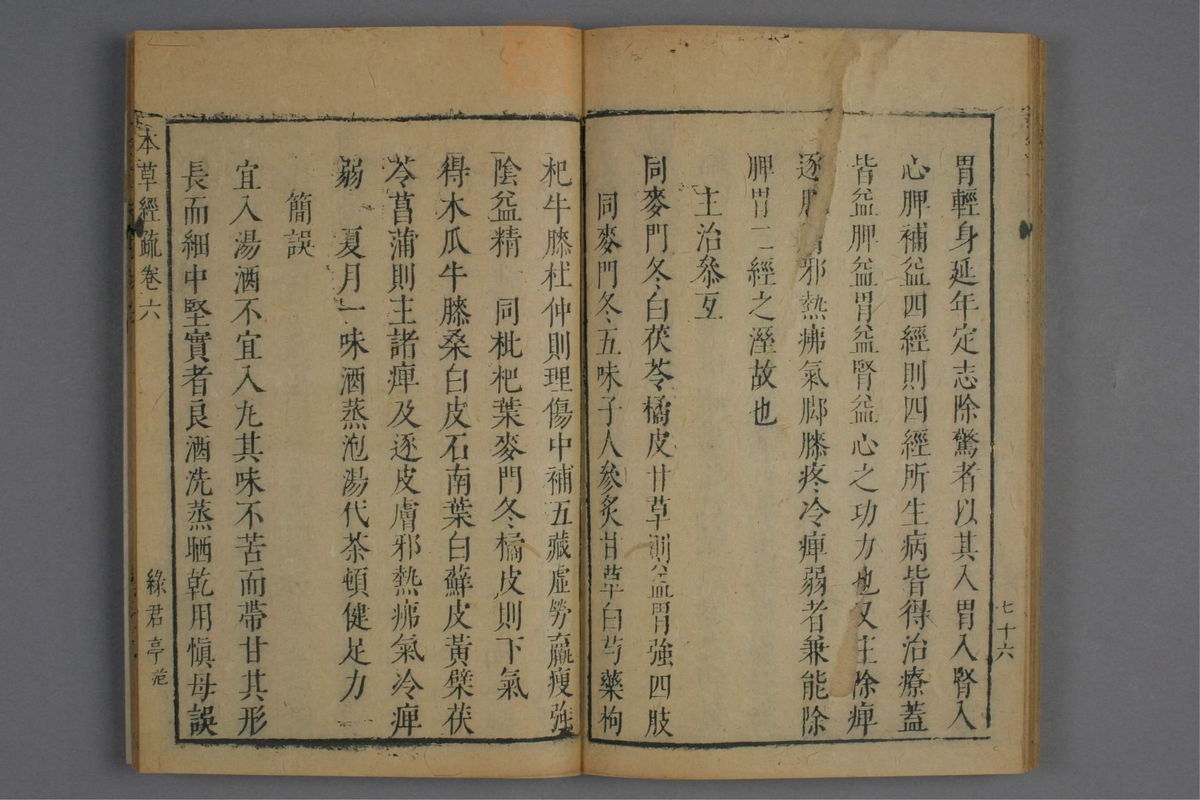 胃輕身延年定志除驚者以其入胃入腎入
心脾補益四經則四經所生病皆得治療蓋
皆益脾益胃益腎益心之功力也又主除痺
逐肌邪熱疿氣脚膝疼冷痺弱者兼能除
脾胃二經之溼故也
主治叅互
同麥門冬白茯苓橘皮甘草則益胃強四肢
同麥門冬五味子人參炙甘草白芍藥枸
七十六
杞牛膝杜仲則理傷中補五藏虛勞羸瘦強
陰益精 同枇杷葉麥門冬橘皮則下氣
得木瓜牛膝桑白皮石南葉白蘚皮黃檗茯
苓菖蒲則主諸痺及逐皮膚邪熱疿氣冷痺
弱 夏月一味酒蒸泡湯代茶頓健足力
簡誤
宜入湯酒不宜入丸其味不苦而帶甘其形
長而細中堅實者良酒洗蒸晒乾用慎母誤
本草經疏卷六
綠君亭